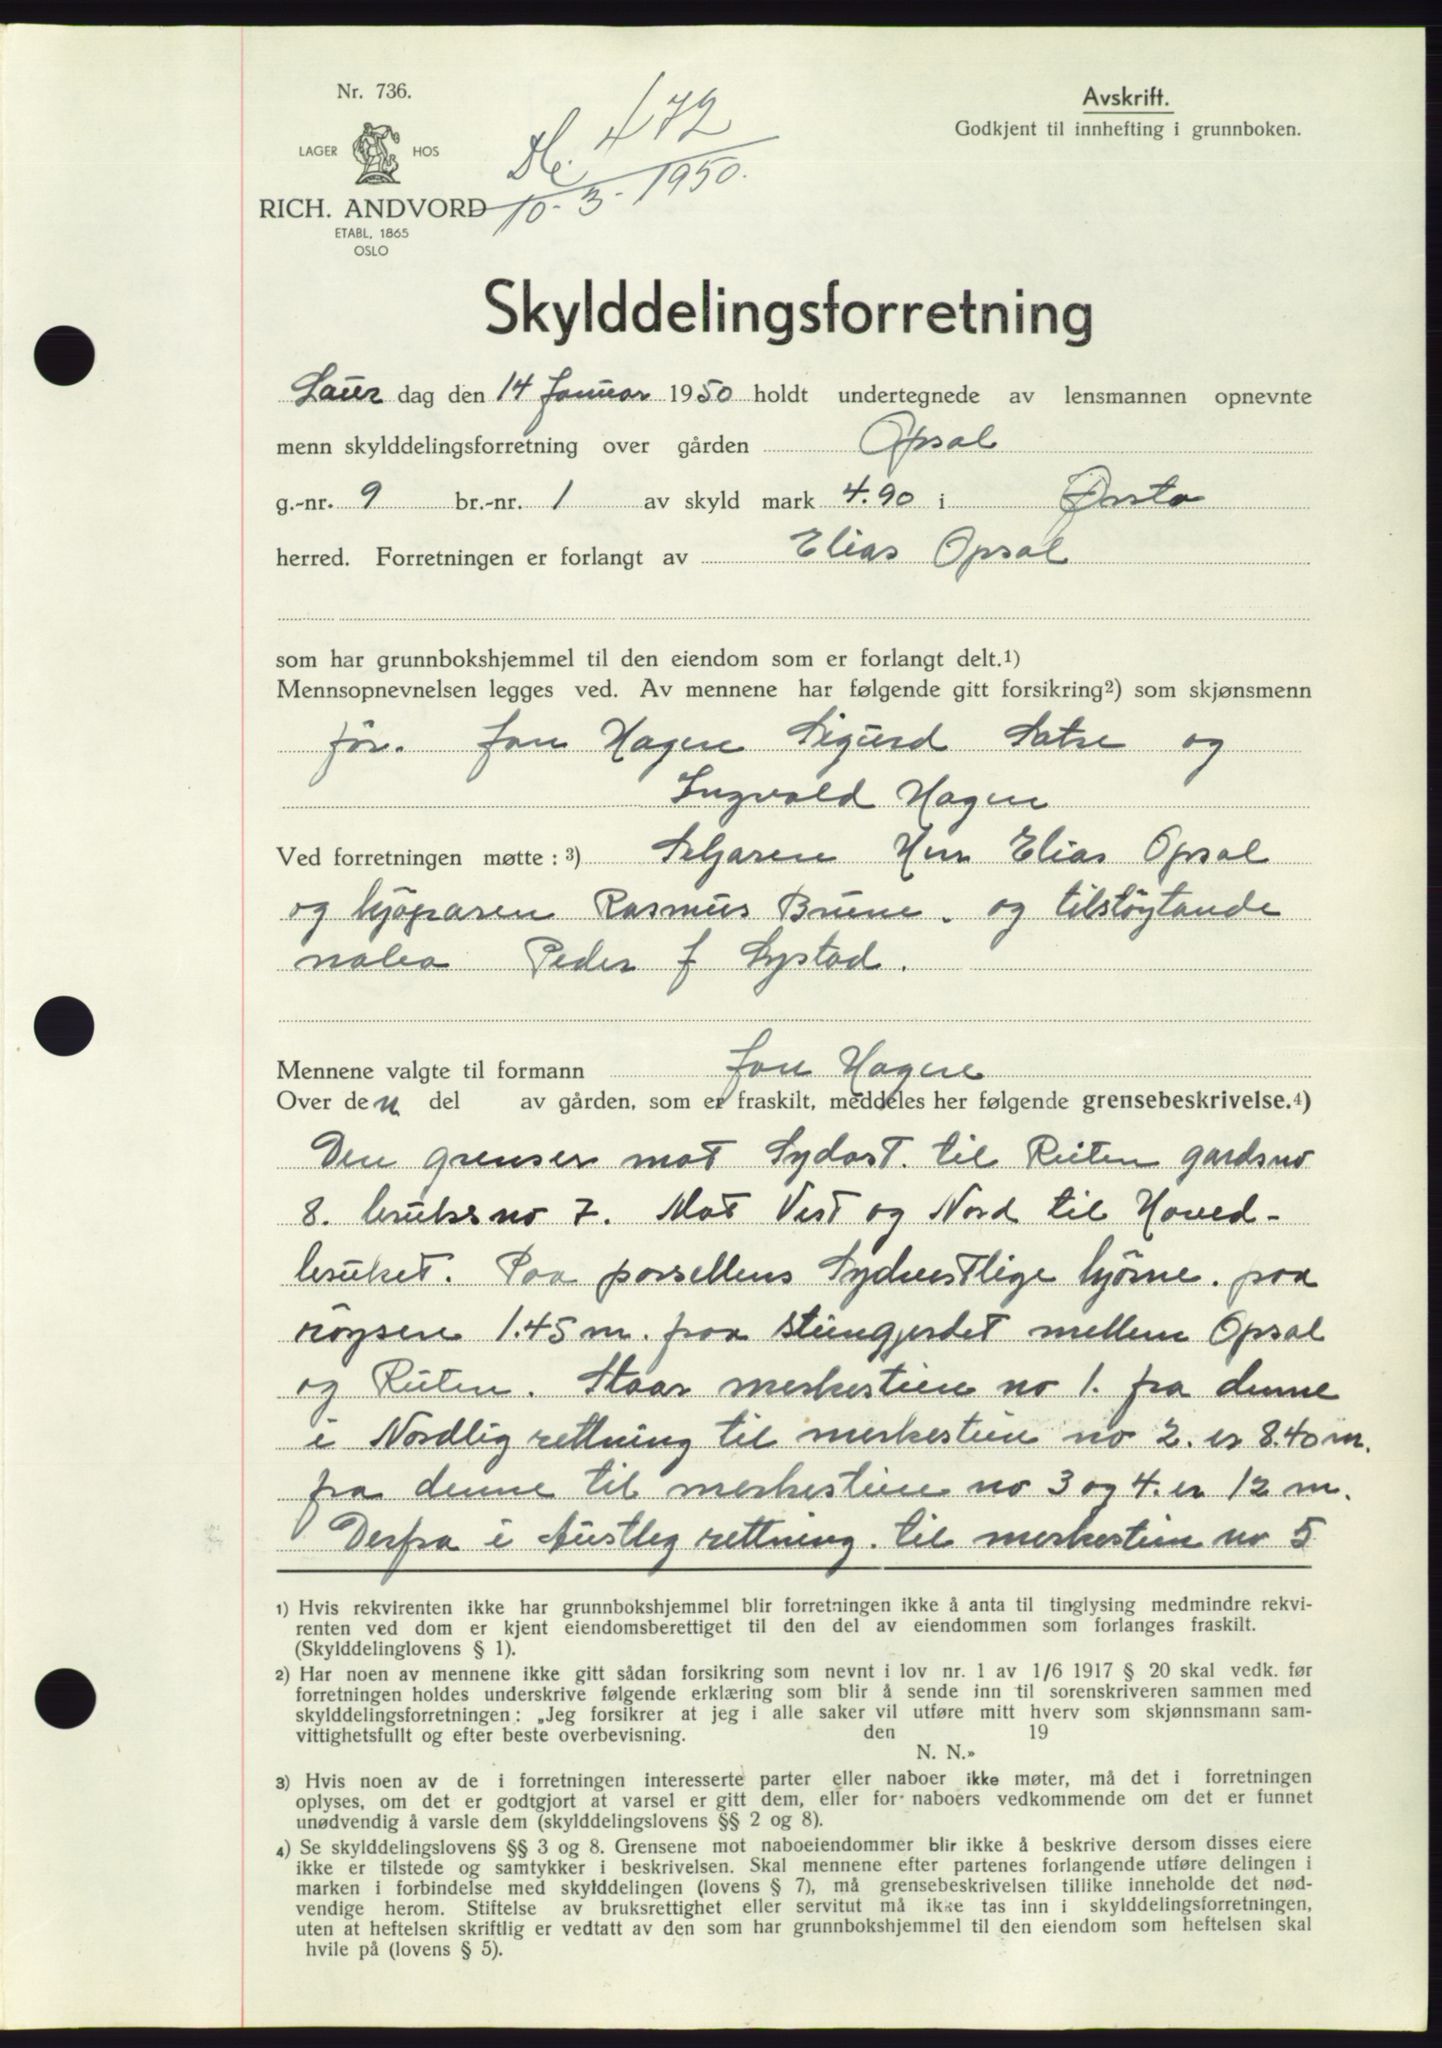 Nr. 736.
LAGER HOS
RICH. ANDVORD
ETABL. 1865
OSLO
472
10-3-1950.
Avskrift.
Godkjent til innhefting i grunnboken.
Skylddelingsforretning
Laur dag den 14 Januar 1950 holdt undertegnede av lensmannen opnevnte
menn skylddelingsforretning over gården Opsal
g.-nr. 9 br.-nr. 1 av skyld mark 4.90 i Ørsta
herred. Forretningen er forlangt av Elias Opsal
som har grunnbokshjemmel til den eiendom som er forlangt delt.1)
Mennsopnevnelsen legges ved. Av mennene har følgende gitt forsikring2) som skjønsmenn
før. Jon Hagen Sigurd Satre og
Ingvald Hagen
Ved forretningen møtte: 3) Seljaren Herr Elias Opsal
og kjöparen Rasmus Brune. og tilstöytande
nabo Peder J Systad.
Mennene valgte til formann Jon Hagen
Over den del av gården, som er fraskilt, meddeles her følgende grensebeskrivelse.4)
Den grenser mot Sydost. til Reiten gardsno
8. bruksno 7. Mot Vest og Nord til Hoved-
bruket. Paa parsellens Sydvestlige hjörne. paa
röysen 1.45 m. fraa steingjerdet mellem Opsal
og Reiten. Staar merkestein no 1. fra denne
i Nordlig rettning til merkestein no 2. er 8.40 m.
fra denne til merkestein no 3 og 4. er 12 m.
Derfra i Austleg rettning. til merkestein no 5
1) Hvis rekvirenten ikke har grunnbokshjemmel blir forretningen ikke å anta til tinglysing medmindre rekvi-
renten ved dom er kjent eiendomsberettiget til den del av eiendommen som forlanges fraskilt.
(Skylddelinglovens § 1).
2) Har noen av mennene ikke gitt sådan forsikring som nevnt i lov nr. 1 av 1/6 1917 § 20 skal vedk. før
forretningen holdes underskrive følgende erklæring som blir å sende inn til sorenskriveren sammen med
skylddelingsforretningen: „Jeg forsikrer at jeg i alle saker vil utføre mitt hverv som skjønnsmann sam-
vittighetsfullt og efter beste overbevisning. den 19
N. N.»
3) Hvis noen av de i forretningen interesserte parter eller naboer ikke møter, må det i forretningen
oplyses, om det er godtgjort at varsel er gitt dem, eller for naboers vedkommende om det er funnet
unødvendig å varsle dem (skylddelingslovens §§ 2 og 8).
4) Se skylddelingslovens §§ 3 og 8. Grensene mot naboeiendommer blir ikke å beskrive dersom disses eiere
ikke er tilstede og samtykker i beskrivelsen. Skal mennene efter partenes forlangende utføre delingen i
marken i forbindelse med skylddelingen (lovens § 7), må grensebeskrivelsen tillike inneholde det nød-
vendige herom. Stiftelse av bruksrettighet eller servitut må ikke tas inn i skylddelingsforretningen,
uten at heftelsen skriftlig er vedtatt av den som har grunnbokshjemmel til den eiendom som heftelsen skal
hvile på (lovens § 5).